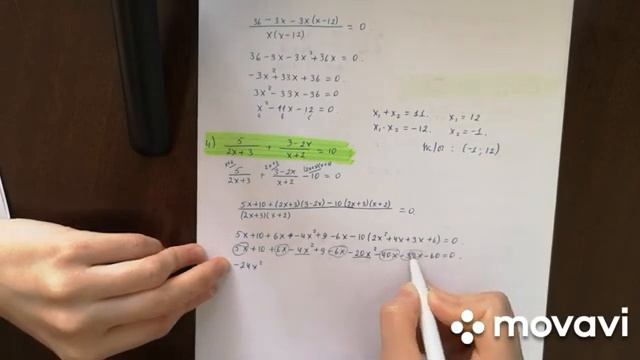 36 - 3x - 3x(x-12) / x(x-12) = 0
36 - 3x - 3x² + 36x = 0.
-3x² + 33x + 36 = 0.
3x² - 33x - 36 = 0
x² - 11x - 12 = 0.
x₁ + x₂ = 11. x₁ = 12
x₁ · x₂ = -12. x₂ = -1.
: (-1; 12)
4) 5 / 2x+3 + 3-2x / x+2 = 10
5 / 2x+3 + 3-2x / x+2 - 10 = 0
5x+10 + (2x+3)(3-2x) - 10(2x+3)(x+2) / (2x+3)(x+2) = 0.
5x+10 + 6x - 4x² + 9 - 6x - 10(2x² + 4x + 3x + 6) = 0.
5x + 10 + 6x - 4x² + 9 - 6x - 20x² - 40x - 30x - 60 = 0.
-24x²
movavi